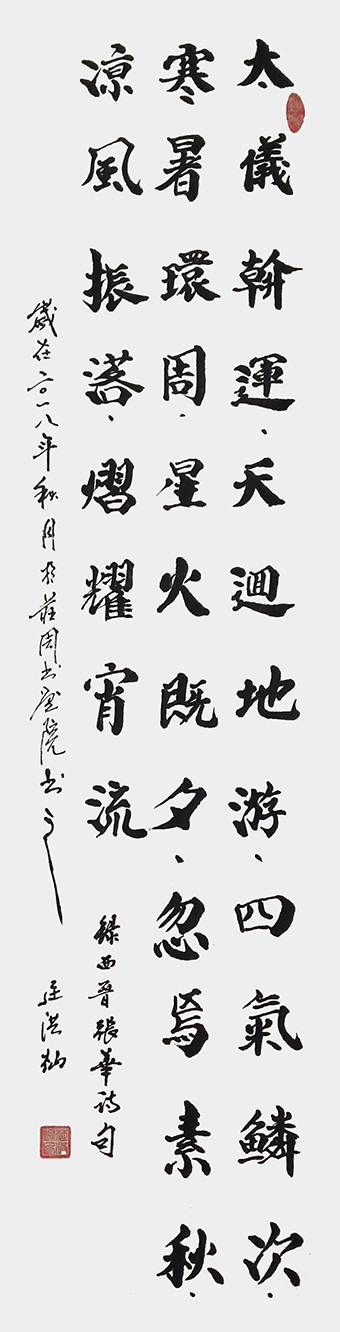 太儀斡運、天迴地游、四氣鱗次、
寒暑環周、星火既夕、忽焉素秋、
凉風振落、熠耀宵流
錄西晉張華詩句
歲在二〇一八年秋月於莊周書畫院書之